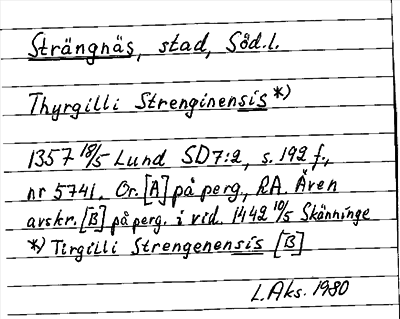 Strängnäs, stad, Söd.l.
Thyrgilli Strenginensis *)
1357 18/5 Lund SD7:2, s. 192 f.,
nr 5741. Or. [A] på perg., RA. Även
avskr. [B] på perg. i vid. 1442 10/5 Skänninge
*) Tirgilli Strengenensis [B]
L. Aks. 1980